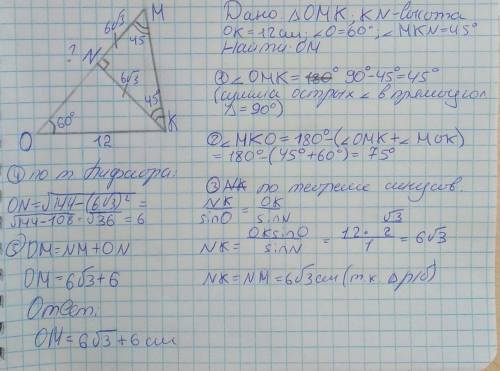 M
6√3
45
?
N
6√3
45
60°
O
12
K
Дано: △OMK, KN-высота
OK=12см; ∠O=60°, ∠MKN=45°
Найти: OM
① ∠OMK= 180° 90°-45°=45°
(сумма острых ∠ в прямоугол
△=90°)
② ∠MKO=180°-(∠OMK+∠MOK)
=180°-(45°+60°)=75°
③ NK по теореме синусов:
NK/sinO = OK/sinN
NK= OKsinO/sinN = 12·√3/2/1 =6√3
NK=NM=6√3см (т.к. △р/б)
④ по т. Пифагора:
ON=√144-(6√3)²=
√144-108=√36=6
⑤ OM=NM+ON
OM=6√3+6
Ответ:
OM=6√3+6 см